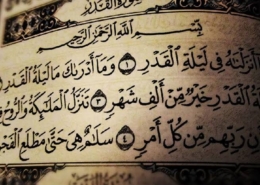 بِسْمِ ٱللَّهِ ٱلرَّحْمَٰنِ ٱلرَّحِيمِ
أَنزَلْنَٰهُ فِي لَيْلَةِ ٱلْقَدْرِ ١ وَمَآ أَدْرَىٰكَ مَا لَيْلَةُ ٱلْقَدْرِ
ةُ ٱلْقَدْرِ خَيْرٌ مِّنْ أَلْفِ شَهْرٍ ٣ تَنَزَّلُ ٱلْمَلَٰٓئِكَةُ وَٱلرُّوحُ
نِ رَبِّهِم مِّن كُلِّ أَمْرٍ ٤ سَلَٰمٌ هِيَ حَتَّىٰ مَطْلَعِ ٱلْفَجْ